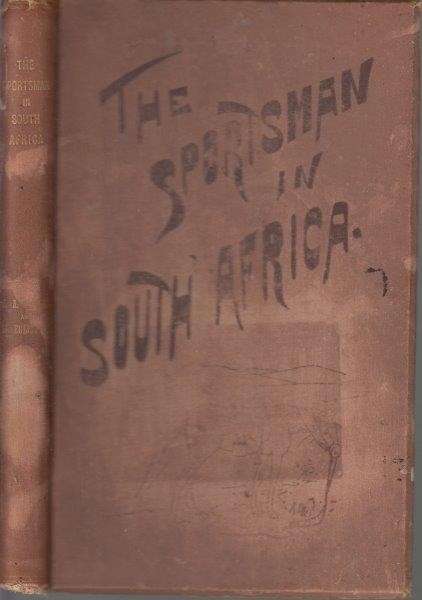 THE
SPORTSMAN
IN
SOUTH
AFRICA
THE
SPORTSMAN
IN
SOUTH AFRICA.